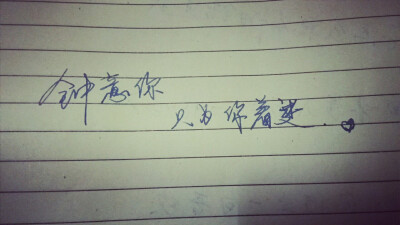 钟意你
只为你着迷.